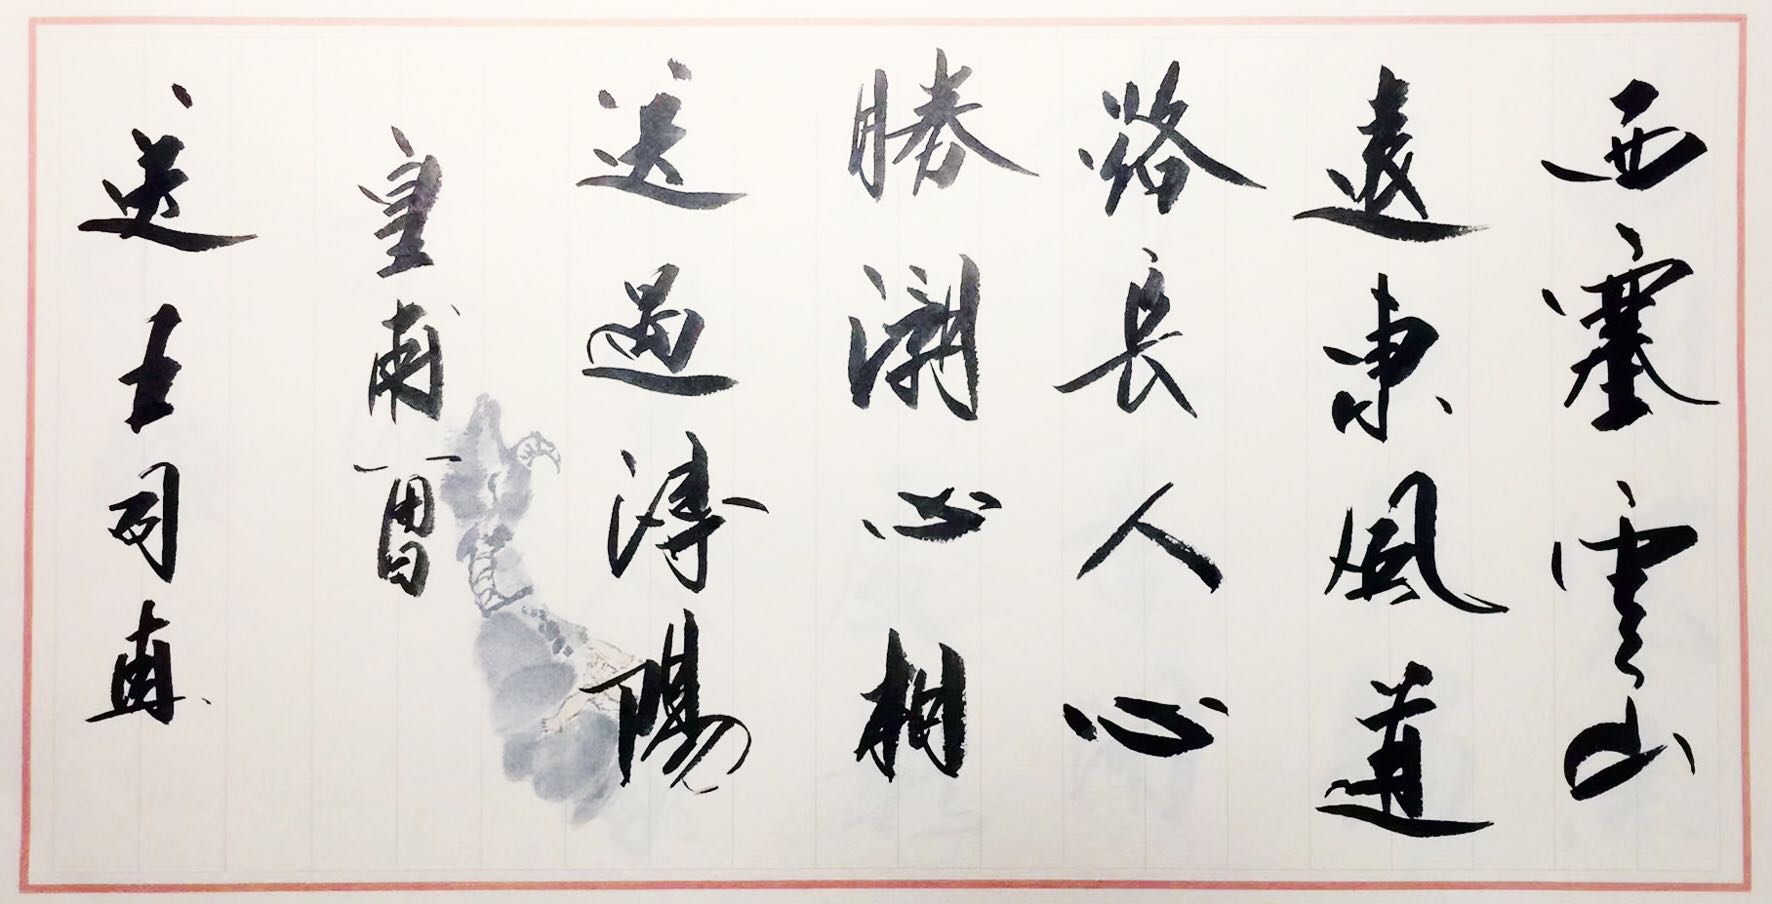 西塞雲山
遠東風道
路長人心
勝潮心相
送過潯陽
皇甫曾
送王司直